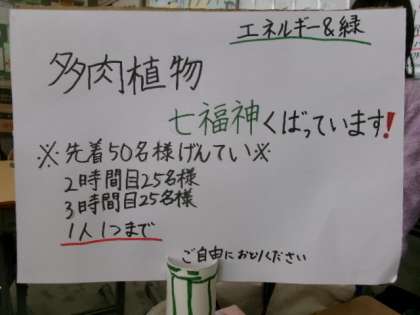 エネルギー&緑
多肉植物
七福神くばっています!
※先着50名様げんてい※
2時間目25名様
3時間目25名様
1人1つまで
ご自由におとりください